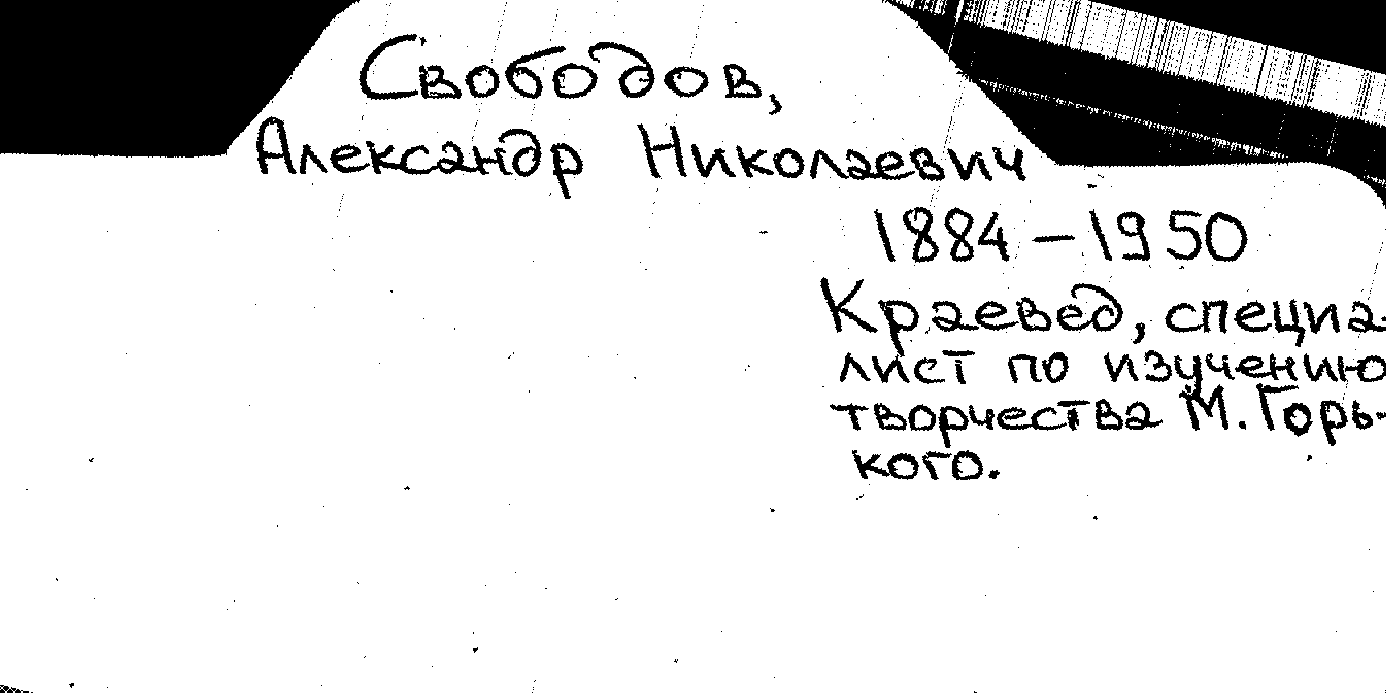 Свободов,
Александр Николаевич
1884 – 1950
Краевед, специа-
лист по изучению
творчества М. Горь-
кого.